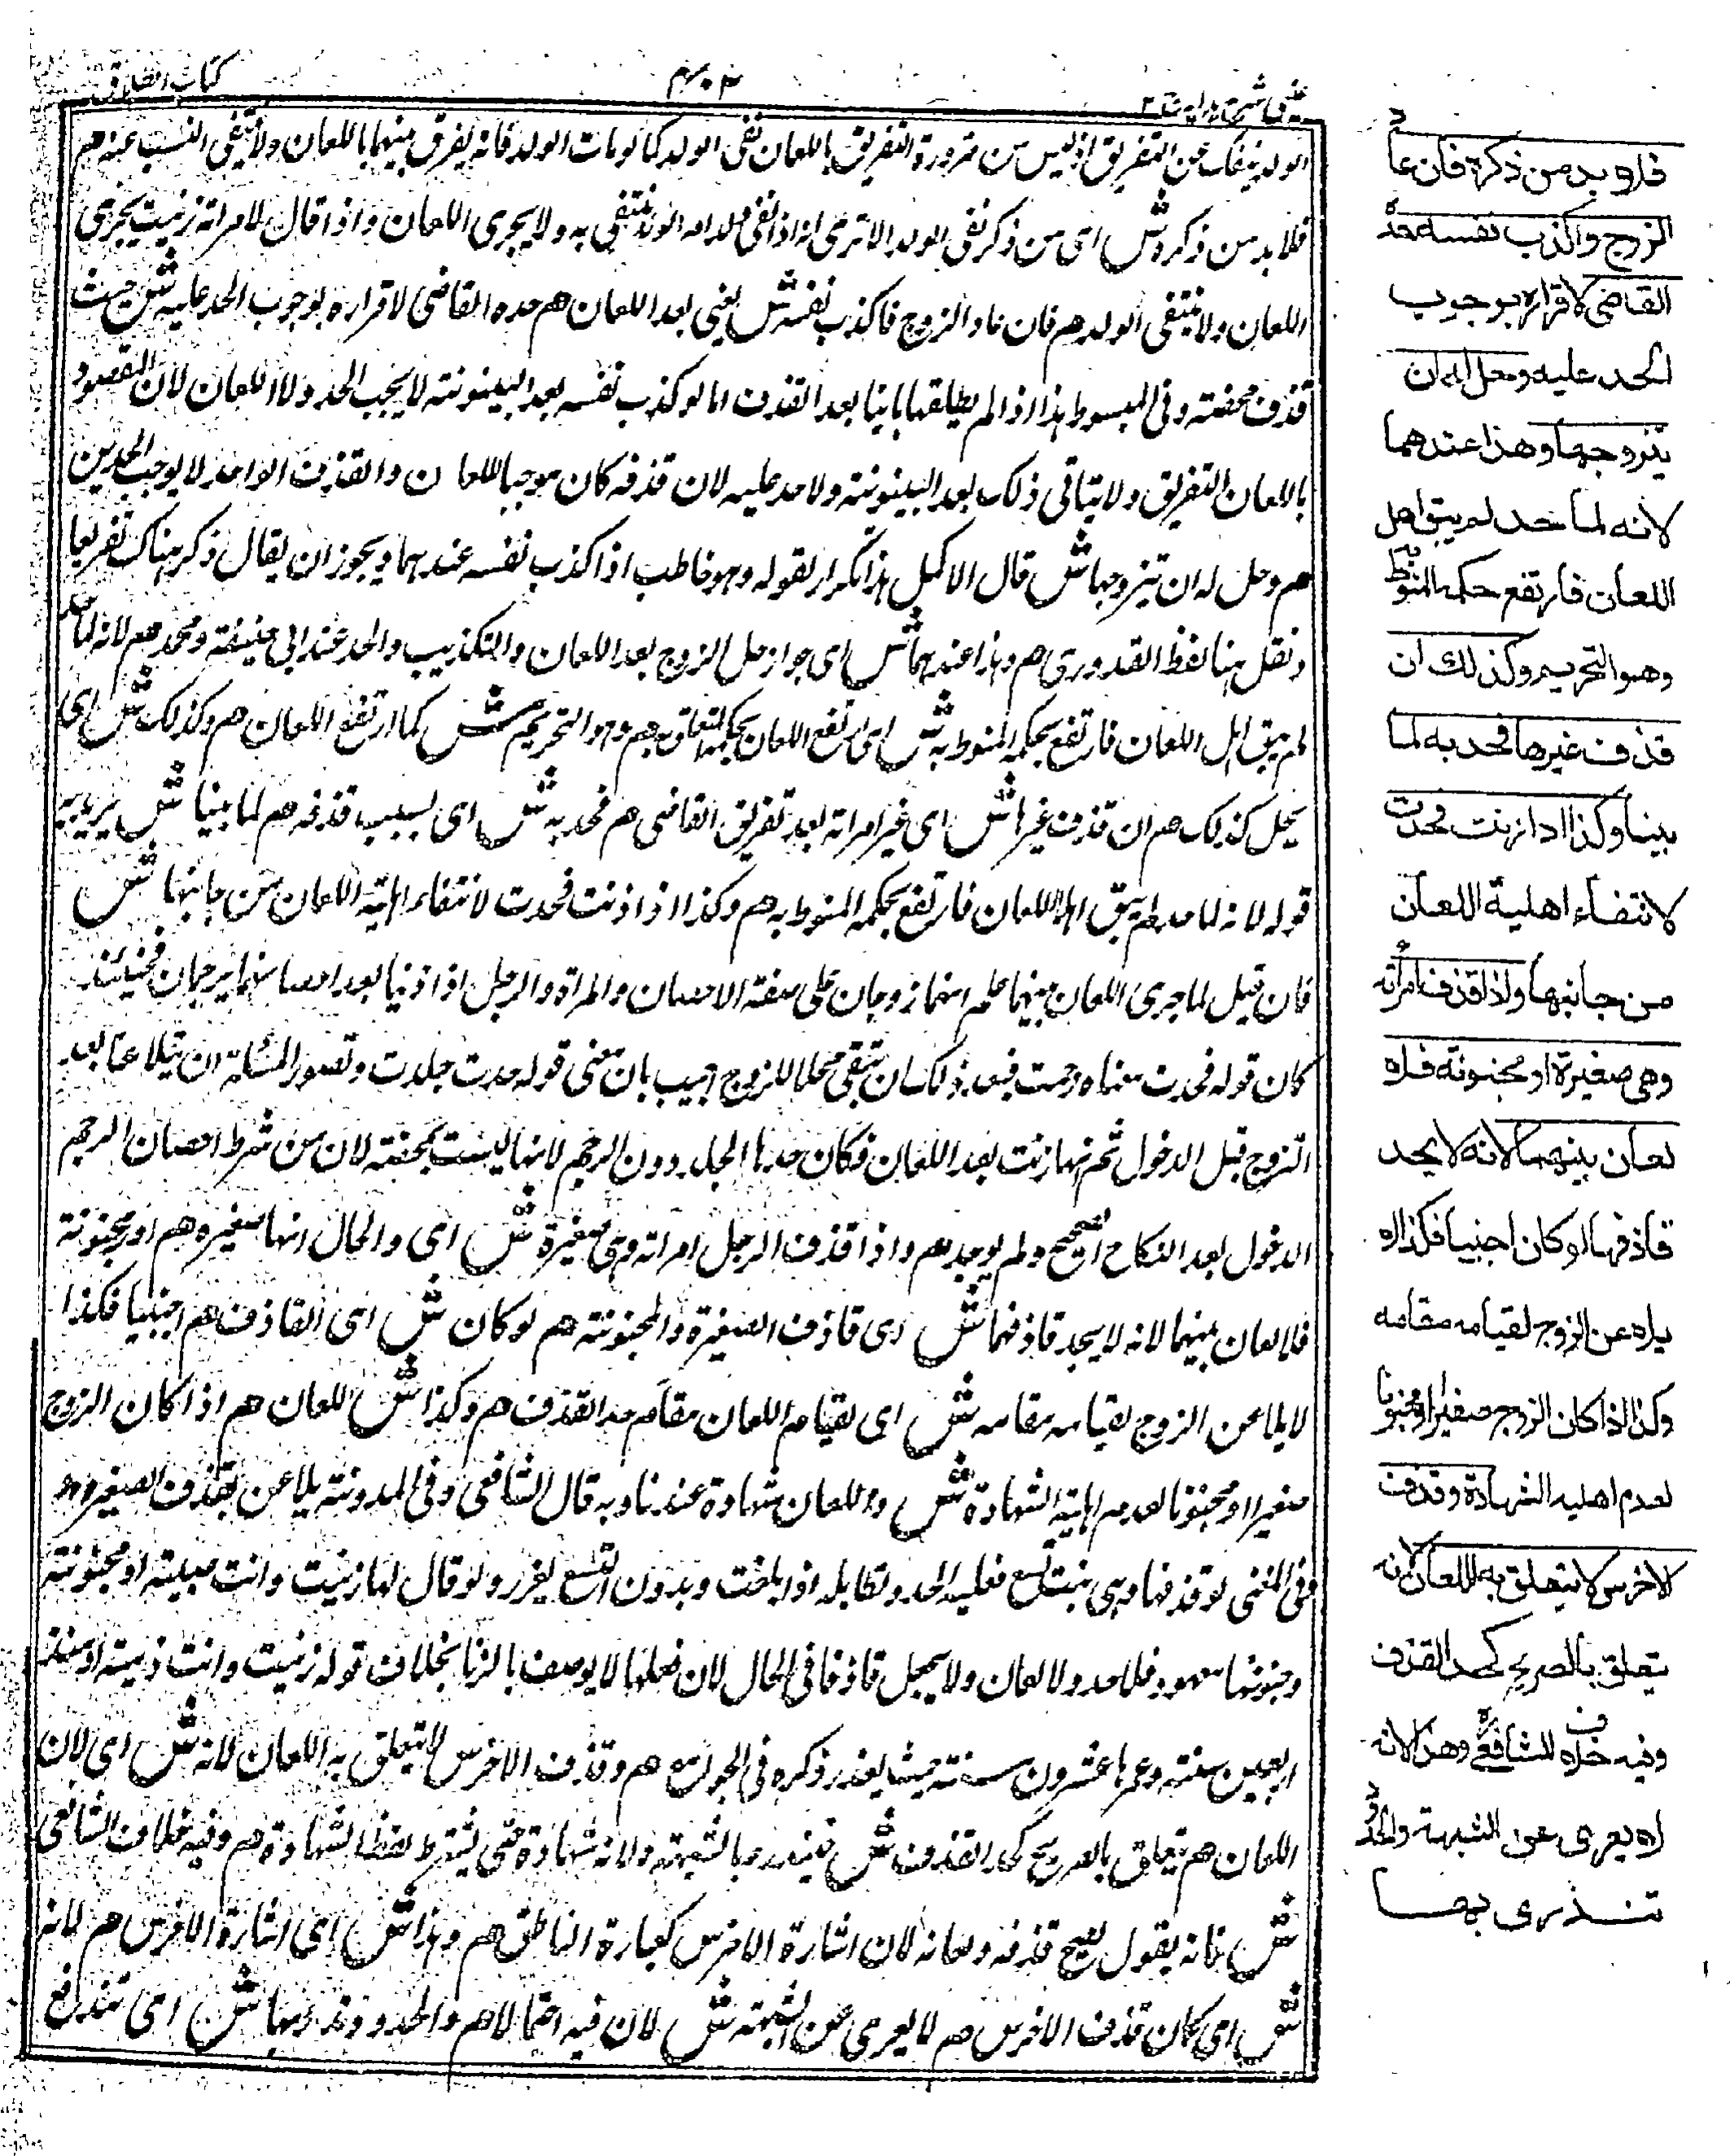 عینی شرح ہدایہ ج ۲
۴۰۳
کتاب الطلاق
الولد ینفک عن التفریق اذ لیس من ضرورة التفریق باللعان نفی الولد کما لو مات الولد فانه یفرق بینهما باللعان ولا ینتفی النسب عنه هم
فلا بد من ذکره ش ای من ذکر نفی الولد الا تری انه اذا نفی ولد امه الولد ینتفی به ولا یجری اللعان واذا قال لامراته زنیت یجری
اللعان ولا ینتفی الولد هم فان عاد الزوج فاکذب نفسه ش یعنی بعد اللعان هم حده القاضی لاقراره بوجوب الحد علیه ش حیث
قذف محصنة وفی المبسوط هذا اذا لم یطلقها باینا بعد القذف اما لو کذب نفسه بعد البینونة لا یجب الحد ولا اللعان لان المقصود
باللعان التفریق ولا یتاتی ذلک بعد البینونة ولا حد علیه لان قذفه کان موجبا للعان والقذف الواحد لا یوجب الحدین
هم وحل له ان یتزوجها ش قال الاکمل هذا تکرار لقوله وهو خاطب اذا کذب نفسه عندهما ویجوز ان یقال ذکر هناک تفریعا
ونقل هنا لفظ القدوری هم وهذا عندهما ش ای جواز حل الزوج بعد اللعان والتکذیب والحد عند ابی حنیفة ومحمد هم لانه لما حد
لم یبق اهل اللعان فارتفع بحکمه المنوط به ش ای ارتفع اللعان بحکمه المتعلق به هم وهو التحریم ش کما ارتفع اللعان هم وکذلک ش ای
یحل کذلک هم ان قذف غیرها ش ای غیر امراته بعد تفریق القاضی هم فحد به ش ای بسبب قذفه هم لما بینا ش یرید به
قوله لانه لما حد لم یبق اهلا للعان فارتفع بحکمه المنوط به هم وکذا اذا زنت فحدت لانتفاء اهلیة اللعان من جانبها ش
فان قیل لما جری اللعان بینهما علم انهما زوجان علی صفة الاحصان والمراة والرجل اذا زنیا بعد احصانهما یرجمان فحینئذ
کان قوله فحدت معناه رجمت فبعد ذلک ان تبقی محلا للزوج اجیب بان معنی قوله حدت جلدت وتصور المسئلة ان یتلاعنا بعد
التزوج قبل الدخول ثم انها زنت بعد اللعان فکان حدها الجلد دون الرجم لانها لیست بمحصنة لان من شرط احصان الرجم
الدخول بعد النکاح الصحیح ولم یوجد هم واذا قذف الرجل امراته وهی صغیرة ش ای والحال انها صغیره هم او مجنونة
فلا لعان بینهما لانه لا یحد قاذفهما ش ای قاذف الصغیرة والمجنونة هم لو کان ش ای القاذف هم اجنبیا فکذا
لا یلاعن الزوج لقیامه مقامه ش ای لقیام اللعان مقام حد القذف هم وکذا ش اللعان هم اذا کان الزوج
صغیرا او مجنونا لعدم اهلیة الشهادة ش واللعان شهادة عندنا وبه قال الشافعی وفی المدونة یلاعن بقذف الصغیره
وفی المغنی لو قذفها وهی بنت تسع فعلیه الحد وتطالبه اذا بلغت وبدون التسع یغرر ولو قال لها زنیت وانت صبیة او مجنونة
وجنونها معهود فلا حد ولا لعان ولا یجعل قاذفا فی الحال لان فعلها لا یوصف بالزنا بخلاف قوله زنیت وانت ذمیة او منذ
اربعین سنة وعمرها عشرون سنة حیث یغدر ذکره فی الجوامع هم وقذف الاخرس لا یتعلق به اللعان لانه ش ای لان
اللعان هم یتعلق بالصریح کحد القذف ش فیندرء بالشبهة ولانه شهادة حتی یشترط لفظ الشهادة هم وفیه خلاف الشافعی
ش فانه یقول یصح قذفه ولعانه لان اشارة الاخرس کعبارة الناطق هم وهذا ش ای اشارة الاخرس هم لانه
ش ای کان قذف الاخرس هم لا یعری عن الشبهة ش لان فیه احتمالا هم والحدود تندرئ بها ش ای تندفع
فلا بد من ذکره فان عاد
الزوج واکذب نفسه حدہ
القاضی لاقراره بوجوب
الحد علیه وحل له ان
یتزوجها وهذا عندهما
لانه لما حد لم یبق اهل
اللعان فارتفع حکمه المنوط به
وهو التحریم وکذلک ان
قذف غیرها فحد به لما
بینا وکذا اذا زنت فحدت
لانتفاء اهلیة اللعان
من جانبها واذا قذف امرأته
وهی صغیرة او مجنونة فلا
لعان بینهما لانه لا یحد
قاذفها لو کان اجنبیا فکذا لا
یلاعن الزوج لقیامه مقامه
وکذا اذا کان الزوج صغیرا او مجنونا
لعدم اهلیه الشهادة وقذف
الاخرس لا یتعلق به اللعان لانه
یتعلق بالصریح کحد القذف
وفیه خلاف للشافعی وهذا لانه
لا یعری عن الشبهة والحدود
تندری بها